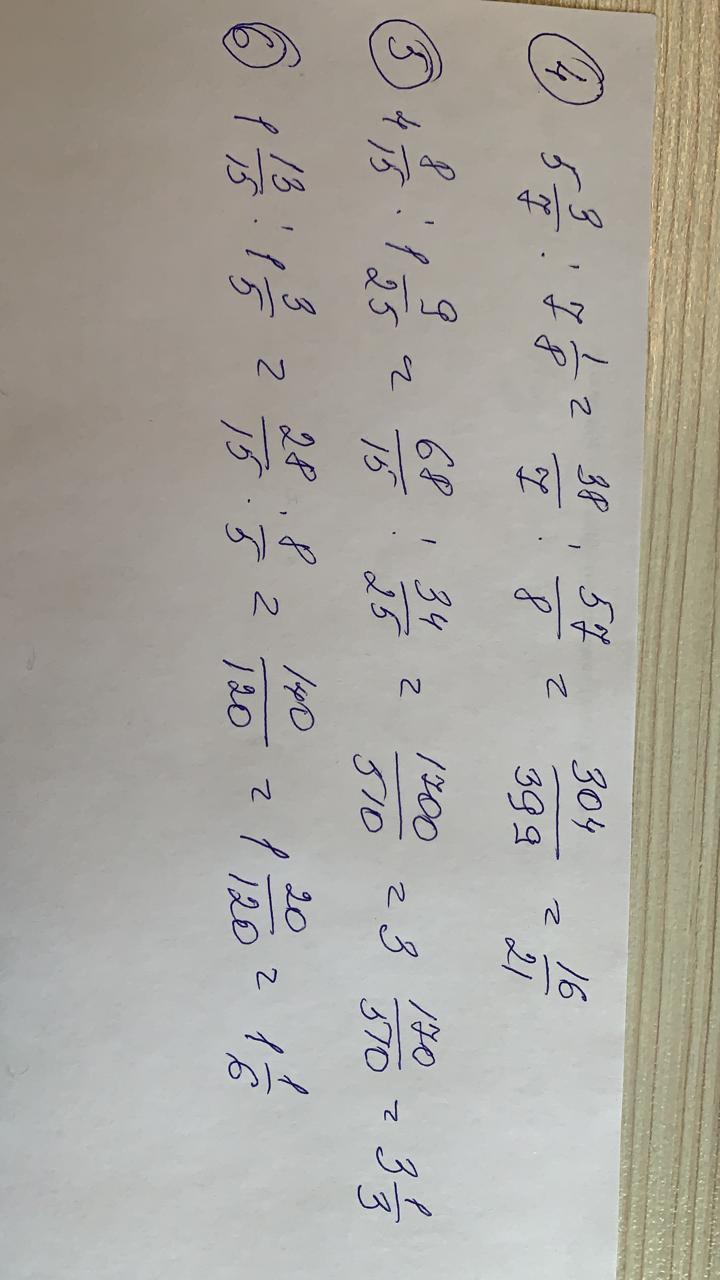 ④ 5 3/7 : 7 1/8 = 38/7 : 57/8 = 304/399 = 16/21
⑤ 4 8/15 : 1 9/25 = 68/15 : 34/25 = 1700/510 = 3 170/510 = 3 1/3
⑥ 1 13/15 : 1 3/5 = 28/15 : 8/5 = 140/120 = 1 20/120 = 1 1/6